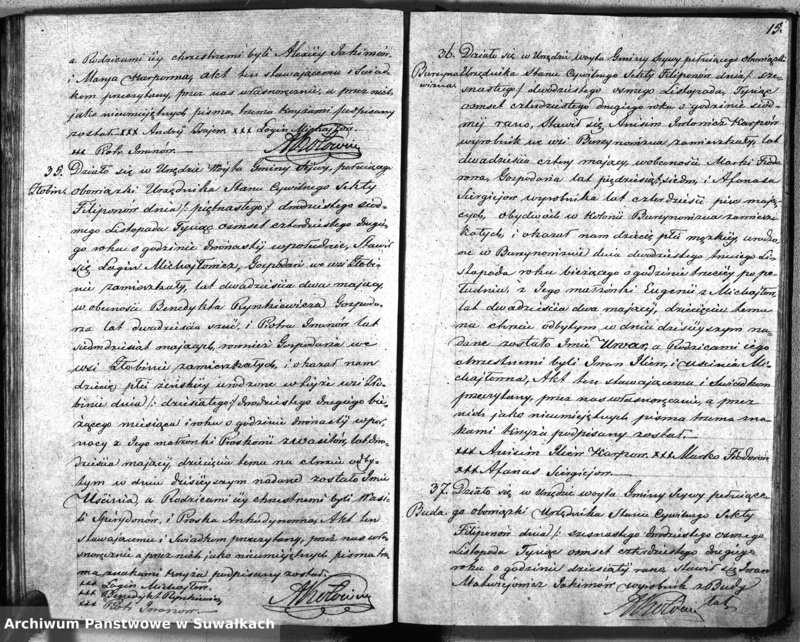 a Rodzicami iey chrzestnemi byli Alexiey Jakimów
i Marya Karpowna, akt ten stawaiącemu i Świad
kom przeczytany, przez nas własnoręcznie, a przez nich
jako nieumieiętnych pisma, trzema krzyżami podpisany
został. +++ Andrzey +++ Łogin Michayłow
+++ Piotr Iwanow.
35. Działo się w Urzędzie Woyta Gminy Szywy, pełniącego
Głobin. obowiązki Urzędnika Stanu Cywilnego Sekty
Filiponów dnia /: piętnastego :/ dwudziestego siód
mego Listopada Tysiąc osmset czterdziestego drugie
go roku o godzinie dwonasty w południe, Stawił
się Łogin Michayłowicz, Gospodarz we wsi Głobi
nie zamieszkały, lat dwadzieścia dwa maiący,
w obecności Benedykta Rynkiewicza Gospoda
rza lat dwadzieścia sześć, i Piotra Iwanow lat
siedmdziesiąt maiących, rownież Gospodarza we
wsi Głobinie zamieszkałych, i okazał nam
dziecię płci żeńskiey urodzone w teyże wsi Gło
binie dnia /: dziesiątego :/ dwudziestego drugiego bie
żącego miesiąca i roku o godzinie dwonasty w poł
nocy z Jego małżonki Proskowii z Wasilow, lat dwa
dzieścia maiący, dziecięciu temu na chrzcie odby
tym w dniu dzisieyszym nadane zostało Imie
Uscinia, a Rodzicami iey chrzestnemi byli Wasi
li Spirydonow, i Proska Ankudynowna, Akt ten
stawaiącemu i Świadkom przeczytany, przez nas wła
snoręcznie a przez nich jako nieumieiętnych pisma trze
ma znakami krzyża podpisany został.
+++ Łogin Michayłow.
+++ Benedykt Rynkiewicz
+++ Piotr Iwanow.
15.
36. Działo się w Urzędzie Woyta Gminy Szywy pełniącego obowiązki
Urzędnika Stanu Cywilnego Sekty Filiponow dnia /: sze
snastego :/ dwudziestego osmego Listopada, Tysiąc
osmset czterdziestego drugiego roku o godzinie siód
mej rano, Stawił się Anisim Karpow
wyrobnik we wsi zamieszkały, lat
dwadzieścia cztery maiący, w obecności Marki Fiodo
rowa, Gospodarza lat pięćdziesiąt siedm, i Afanasa
Siergiejow wyrobnika lat czterdzieści maią
cych, obydwóch w Kolonii zamiesz
kałych, i okazał nam dziecię płci męzkiey, urodzo
ne w dnia dwudziestego trzeciego Li
stopada roku bieżącego o godzinie trzeciey po po
łudniu, z Jego małżonki Eugenii z Michayłow,
lat dwadzieścia dwa maiący, dziecięciu temu
na chrzcie odbytym w dniu dzisieyszym na
dane zostało Imie a Rodzicami iego
chrzestnemi byli Iwan Ilien, i Uscinia Mi
chayłowna, Akt ten stawaiącemu i Świadkom
przeczytany, przez nas własnoręcznie, a przez
nich jako nieumieiętnych pisma trzema zna
kami krzyża podpisany został.
+++ Anisim Ilien Karpow. +++ Marko Fiodorow
+++ Afanas Siergiejow.
37. Działo się w Urzędzie Woyta Gminy Szywy pełniące
Buda. go obowiązki Urzędnika Stanu Cywilnego Sekty
Filiponow dnia /: szesnastego :/ dwudziestego osmego
Listopada Tysiąc osmset czterdziestego drugiego
roku o godzinie dziesiąty rano, Stawił się Iwan
Matwiejowicz Jakimow wyrobnik z Budy
lat
Archiwum Państwowe w Suwałkach